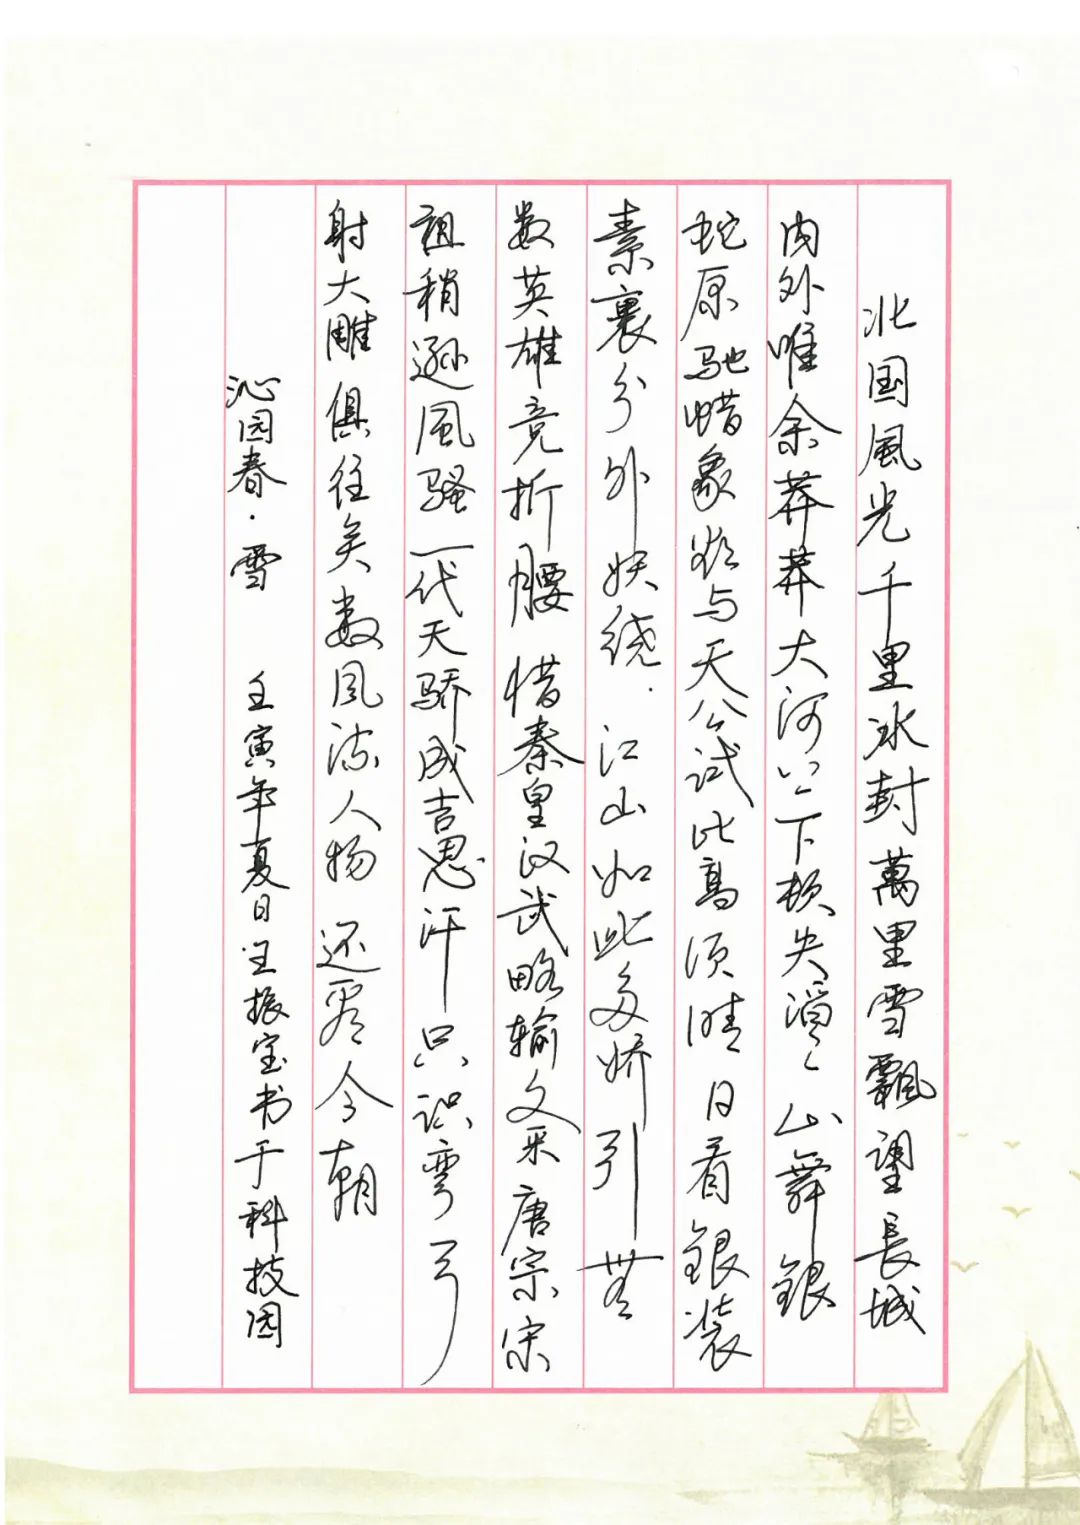 北国風光千里冰封萬里雪飄望長城
内外唯余莽莽大河上下顿失滔々山舞銀
蛇原驰蜡象欲与天公试比高须晴日看銀装
素裹分外妖绕.江山如此多娇引無
数英雄竞折腰惜秦皇汉武略输文采唐宗宋
祖稍逊風骚一代天骄成吉思汗只识弯弓
射大雕俱往矣数风流人物还看今朝
沁园春·雪 壬寅年夏日王振宝书于科技园